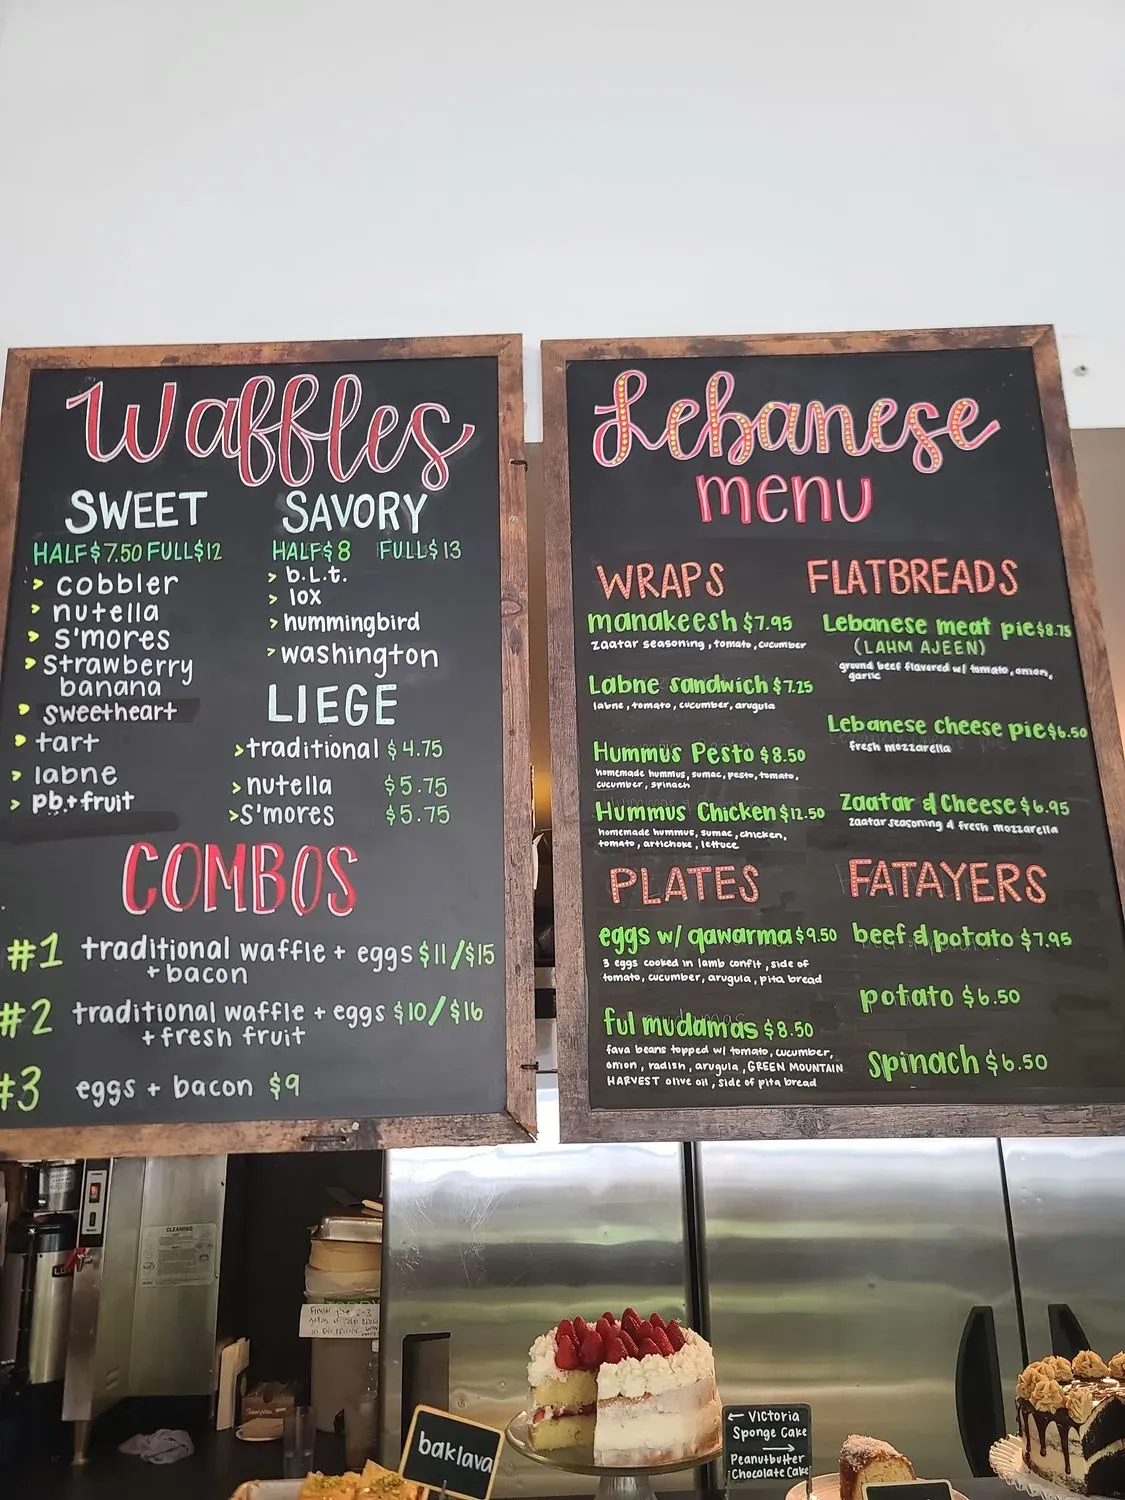 Waffles
SWEET
HALF $7.50 FULL $12
> cobbler
> nutella
> s'mores
> strawberry
banana
> sweetheart
> tart
> labne
> pb.+fruit
SAVORY
HALF $8 FULL $13
> b.L.t.
> lox
> hummingbird
> washington
LIEGE
> traditional $4.75
> nutella $5.75
> s'mores $5.75
COMBOS
#1 traditional waffle + eggs $11/$15
+ bacon
#2 traditional waffle + eggs $10/$16
+ fresh fruit
#3 eggs + bacon $9
Lebanese
menu
WRAPS
manakeesh $7.95
zaatar seasoning, tomato, cucumber
Labne sandwich $7.25
labne, tomato, cucumber, arugula
Hummus Pesto $8.50
homemade hummus, sumac, pesto, tomato,
cucumber, spinach
Hummus Chicken $12.50
homemade hummus, sumac, chicken,
tomato, artichoke, lettuce
FLATBREADS
Lebanese meat pie $8.75
(LAHM AJEEN)
ground beef flavored w/ tomato, onion,
garlic
Lebanese cheese pie $6.50
fresh mozzarella
Zaatar & Cheese $6.95
zaatar seasoning & fresh mozzarella
PLATES
eggs w/ qawarma $9.50
3 eggs cooked in lamb confit, side of
tomato, cucumber, arugula, pita bread
ful mudamas $8.50
fava beans topped w/ tomato, cucumber,
onion, radish, arugula, GREEN MOUNTAIN
HARVEST olive oil, side of pita bread
FATAYERS
beef & potato $7.95
potato $6.50
spinach $6.50
CLEANING
baklava
← Victoria
Sponge Cake
→
Peanutbutter
Chocolate Cake